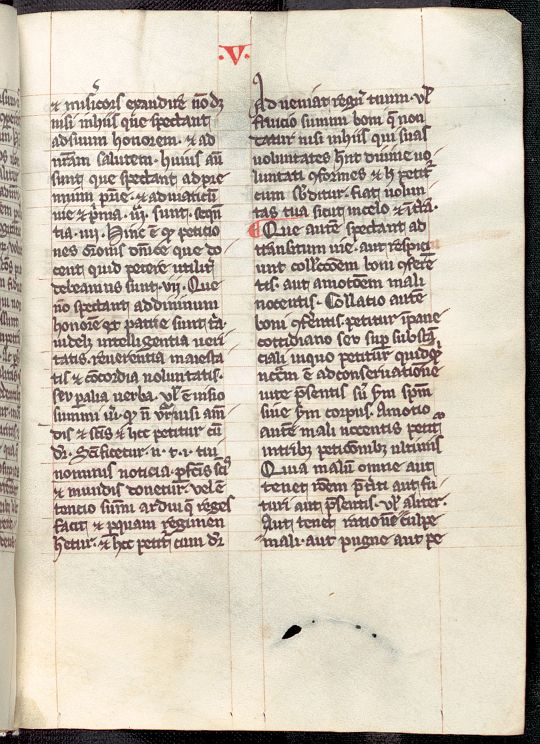 .V.
⁊ mis͛icors exaudire nō d͛ꝫ
nisi in hiis que spectant
ad suum honorem. ⁊ ad
nr̄am salutem. huius aū
sunt que spectant ad p̄e
mium
vie ⁊ p̄mia. iii. sunt. seq̄n
tia .iiii. Hinc ē qͥ petitio
nes or̄onis dn̄ice que do
cent quid petere utilit͛
debeamus sunt .vii. Que
nō spectant ad diuinum
honorē ⁊ patrie sunt t̄a
videlꝫ intelligentia veri
tatis. reuerentia maiesta
tis ⁊ cōcordia voluntatis.
seu ꝑalia uerba. vl̓ ē uisio
summi
dis ⁊ sc̄is ⁊ hec petitur cū
dr̄. Sc̄ificetur .n. t. i. tui
nominis noticia ꝑfectis sc̄is
⁊ mundis donetur. vel ē
tencio sūmi ardui qͣ reges
facit ⁊ ꝑquam regimen
hētur. ⁊ hec petit͛ cum dr̄
Adueniat regnū tuum. vl̓
fruicio summi boni q̄ non
datur nisi in hiis qui suas
voluntates hn̄t diuine uo
luntati ꝯformes ⁊ h̄ petit͛
cum sb̓ditur. fiat uolun
tas tua sicut in celo ⁊ ī t̄ra.
Que autē spectant ad
transitum vie. aut respici
unt collōcōem boni ꝯferē
tis. aut amotōem mali
nocentis. Collatio autē
boni ꝯferētis. petitur ī pane
cottidiano seu suꝑ substā
ciali in quo petitur quidqͥd
nec̄m ē ad conseruationē
uite p̄sentis sīue q̄m sp̄m
siue q̄m corpus. Amotio
autē mali nocentis petit͛
in tribꝫ peticōnibꝫ ultimis
Quia malū omne aut
tenet rōem p̄t̄iti aut fu
turi aut p̄sentis. vl̓ alit͛er.
Aut tenet rationē culpe
mali. aut pugne aut pe